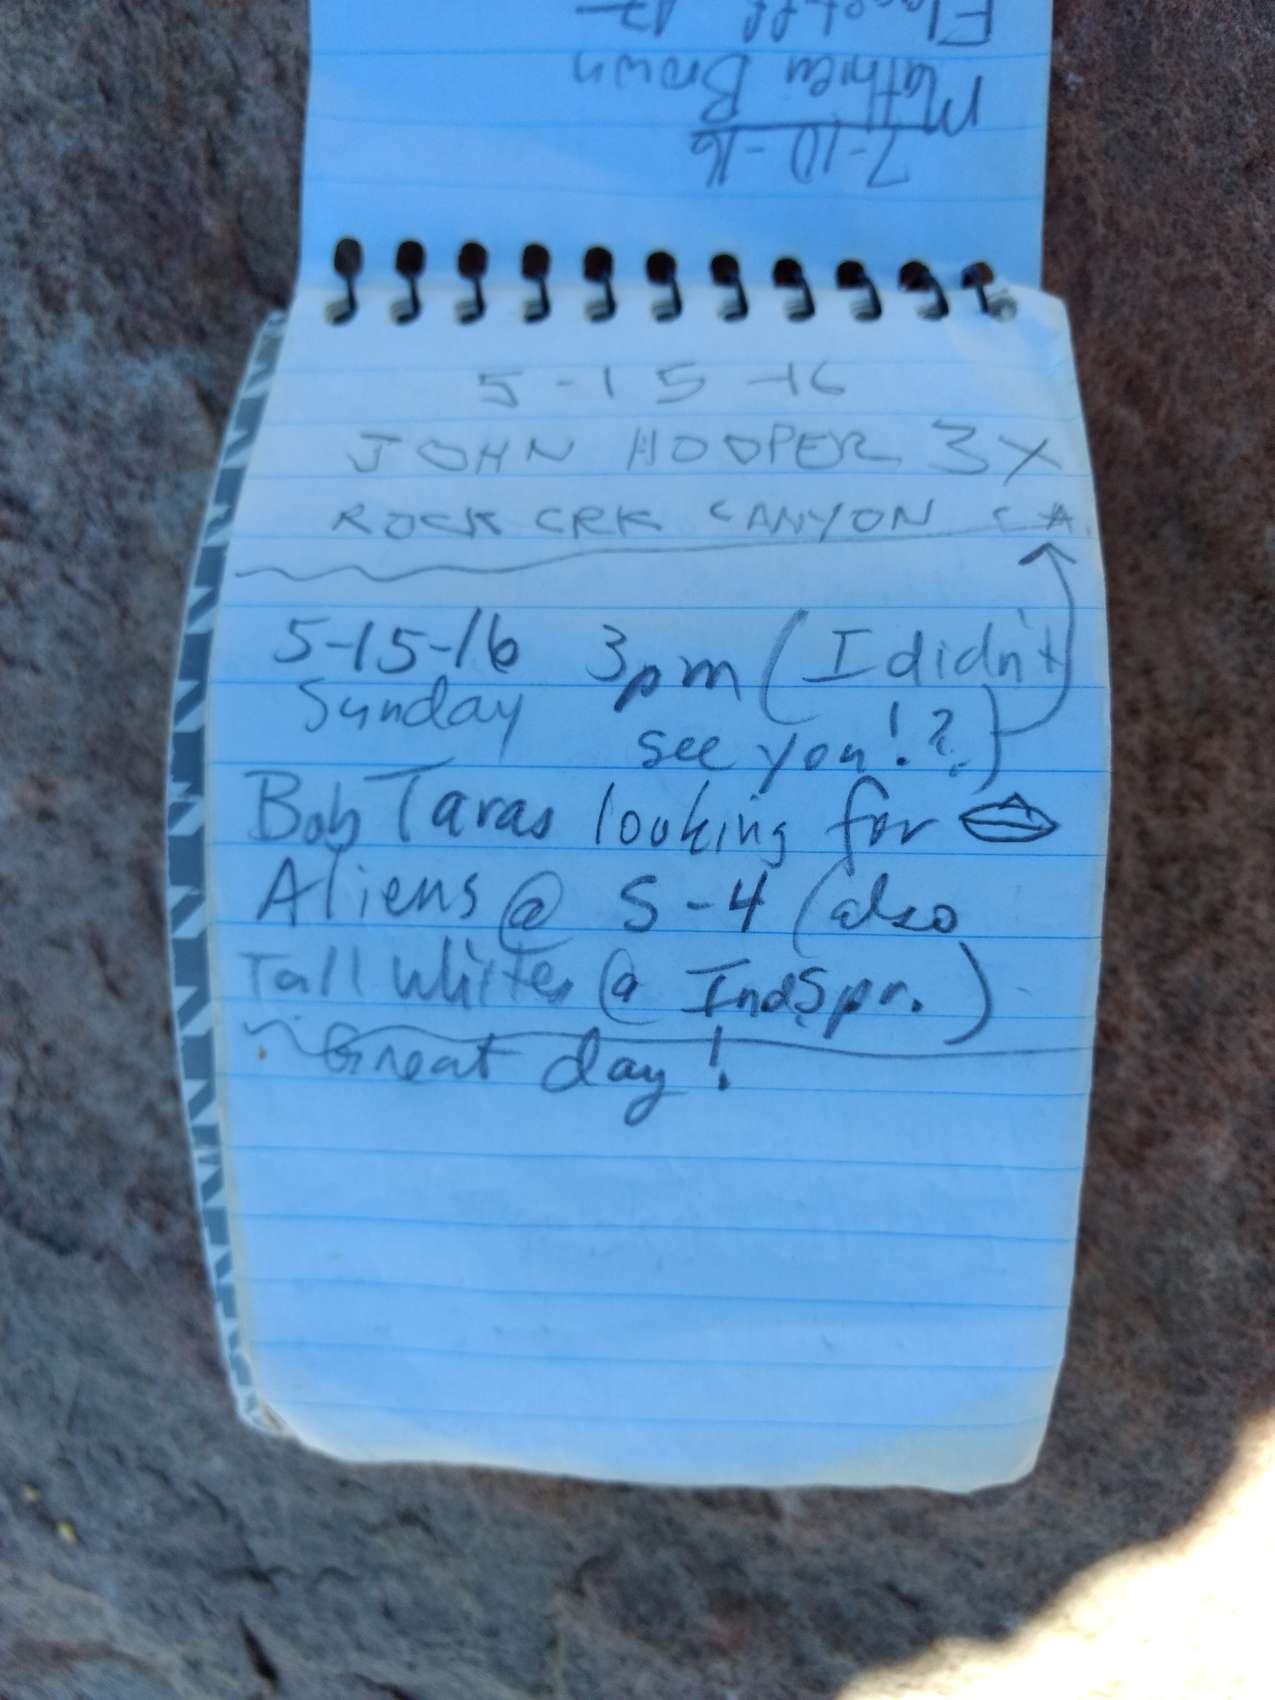 7-10-16
Mathieu Brown
5-15-16
JOHN HOOPER 3X
ROCK CRK CANYON CA.
5-15-16 3pm (I didn't
Sunday see you!?)
Bob Taras looking for
Aliens @ S-4 (also
Tall Whites @ IndSpr.)
Great day!